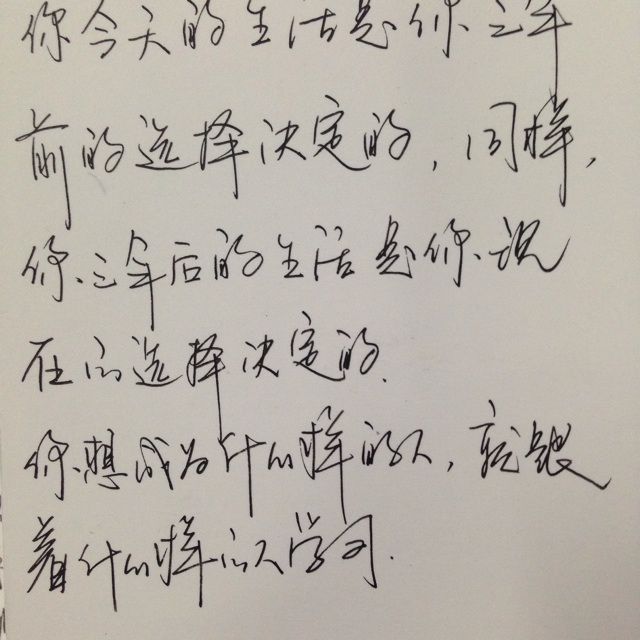 你今天的生活是你三年
前的选择决定的，同样，
你三年后的生活是你现
在的选择决定的.
你想成为什么样的人，就跟
着什么样的人学习.